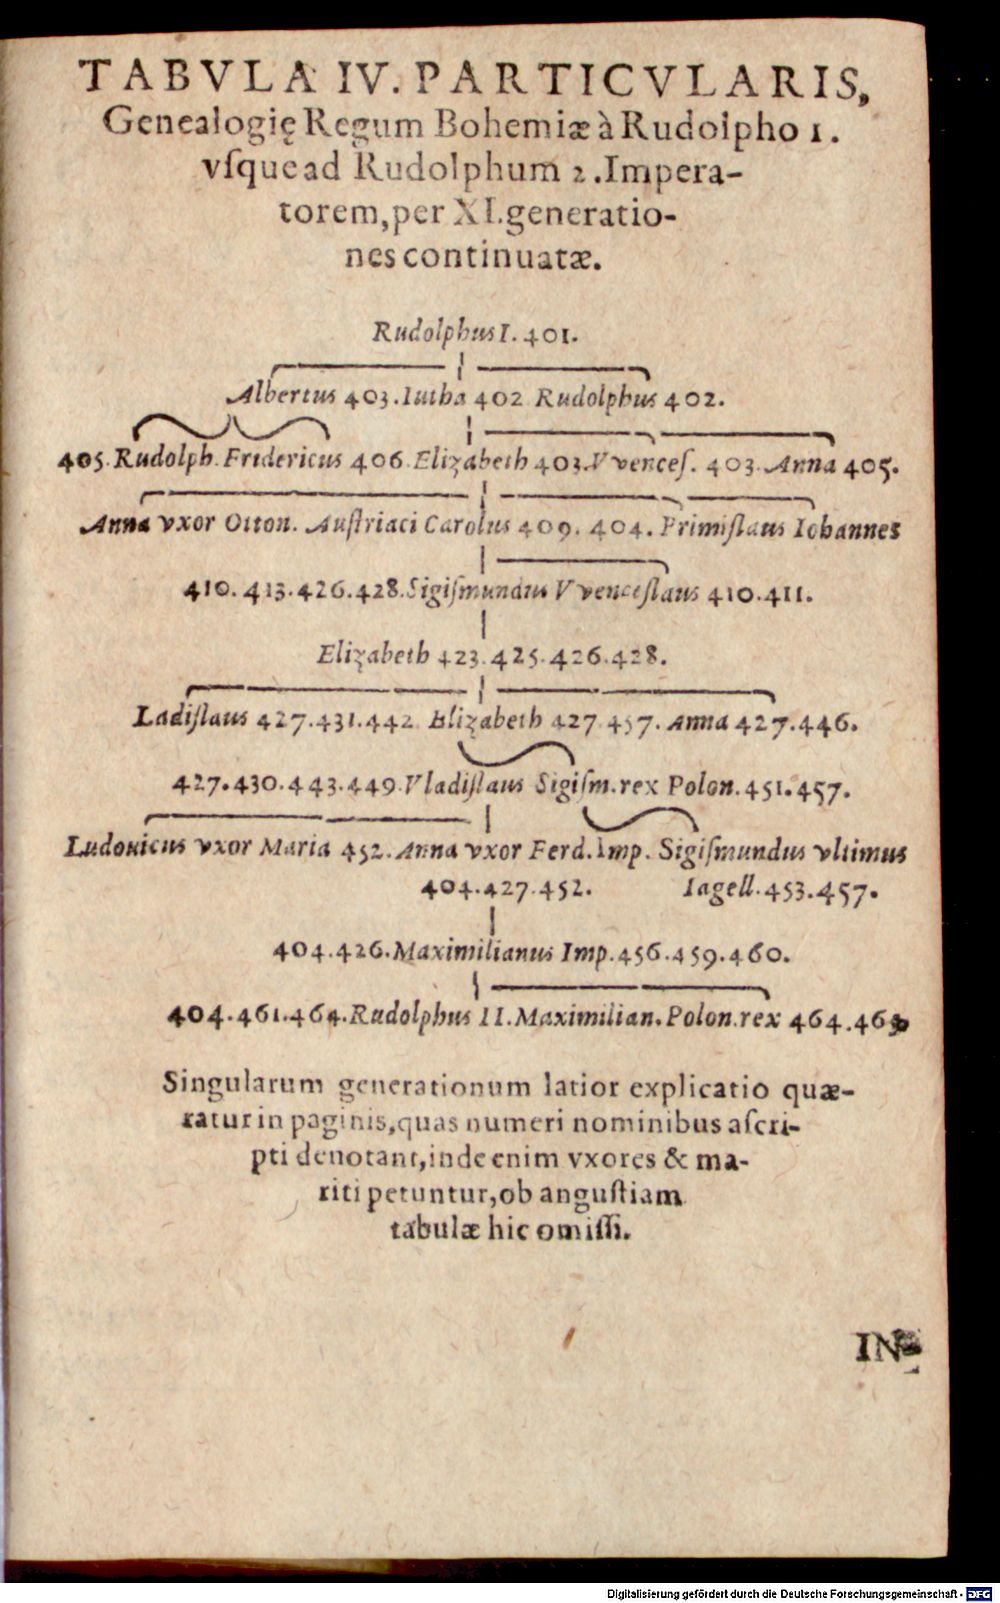 TABVLA IV. PARTICVLARIS,
Genealogię Regum Bohemiæ à Rudolpho 1.
vſque ad Rudolphum 2. Impera-
torem, per XI. generatio-
nes continuatæ.
Rudolphus I. 401.
Albertus 403. Iutha 402 Rudolphus 402.
405. Rudolph. Fridericus 406. Elizabeth 403. VVenceſ. 403. Anna 405.
Anna vxor Otton. Auſtriaci Carolus 409. 404. Primiſlaus Iohannes
410. 413. 426. 428. Sigiſmundus VVenceſlaus 410. 411.
Elizabeth 423. 425. 426. 428.
Ladiſlaus 427. 431. 442. Elizabeth 427. 457. Anna 427. 446.
427. 430. 443. 449. Vladiſlaus Sigiſm. rex Polon. 451. 457.
Ludouicus vxor Maria 452. Anna vxor Ferd. Imp. Sigiſmundus vltimus
404. 427. 452. Iagell. 453. 457.
404. 426. Maximilianus Imp. 456. 459. 460.
404. 461. 464. Rudolphus II. Maximilian. Polon. rex 464.
Singularum generationum latior explicatio quæ-
ratur in paginis, quas numeri nominibus aſcri-
pti denotant, inde enim vxores & ma-
riti petuntur, ob anguſtiam
tabulæ hic omiſſi.
IN-
Digitalisierung gefördert durch die Deutsche Forschungsgemeinschaft - DFG